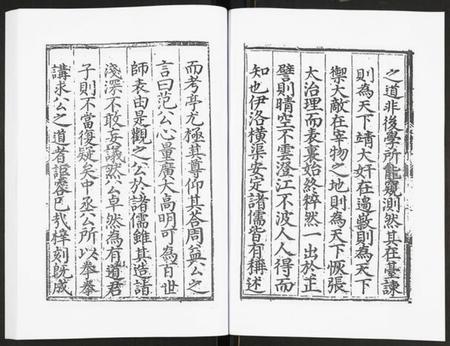 之道非後學所能窺測然其在臺諫
則為天下靖大奸在邊徼則為天下
禦大敵在宰物之地則為天下恢張
太治理而表裏始終粹然一出於正
譬則晴空不雲澄江不波人人得而
知也伊洛橫渠安定諸儒皆有稱述
而考亭尤極其尊仰其答周益公之
言曰范公心量廣大高明可為百世
師表由是觀之公於諸儒雖其造詣
淺深不敢妄議然公卓然為有道君
子則不當復疑矣中丞公所以拳拳
講求公之道者詎容已哉梓刻既成